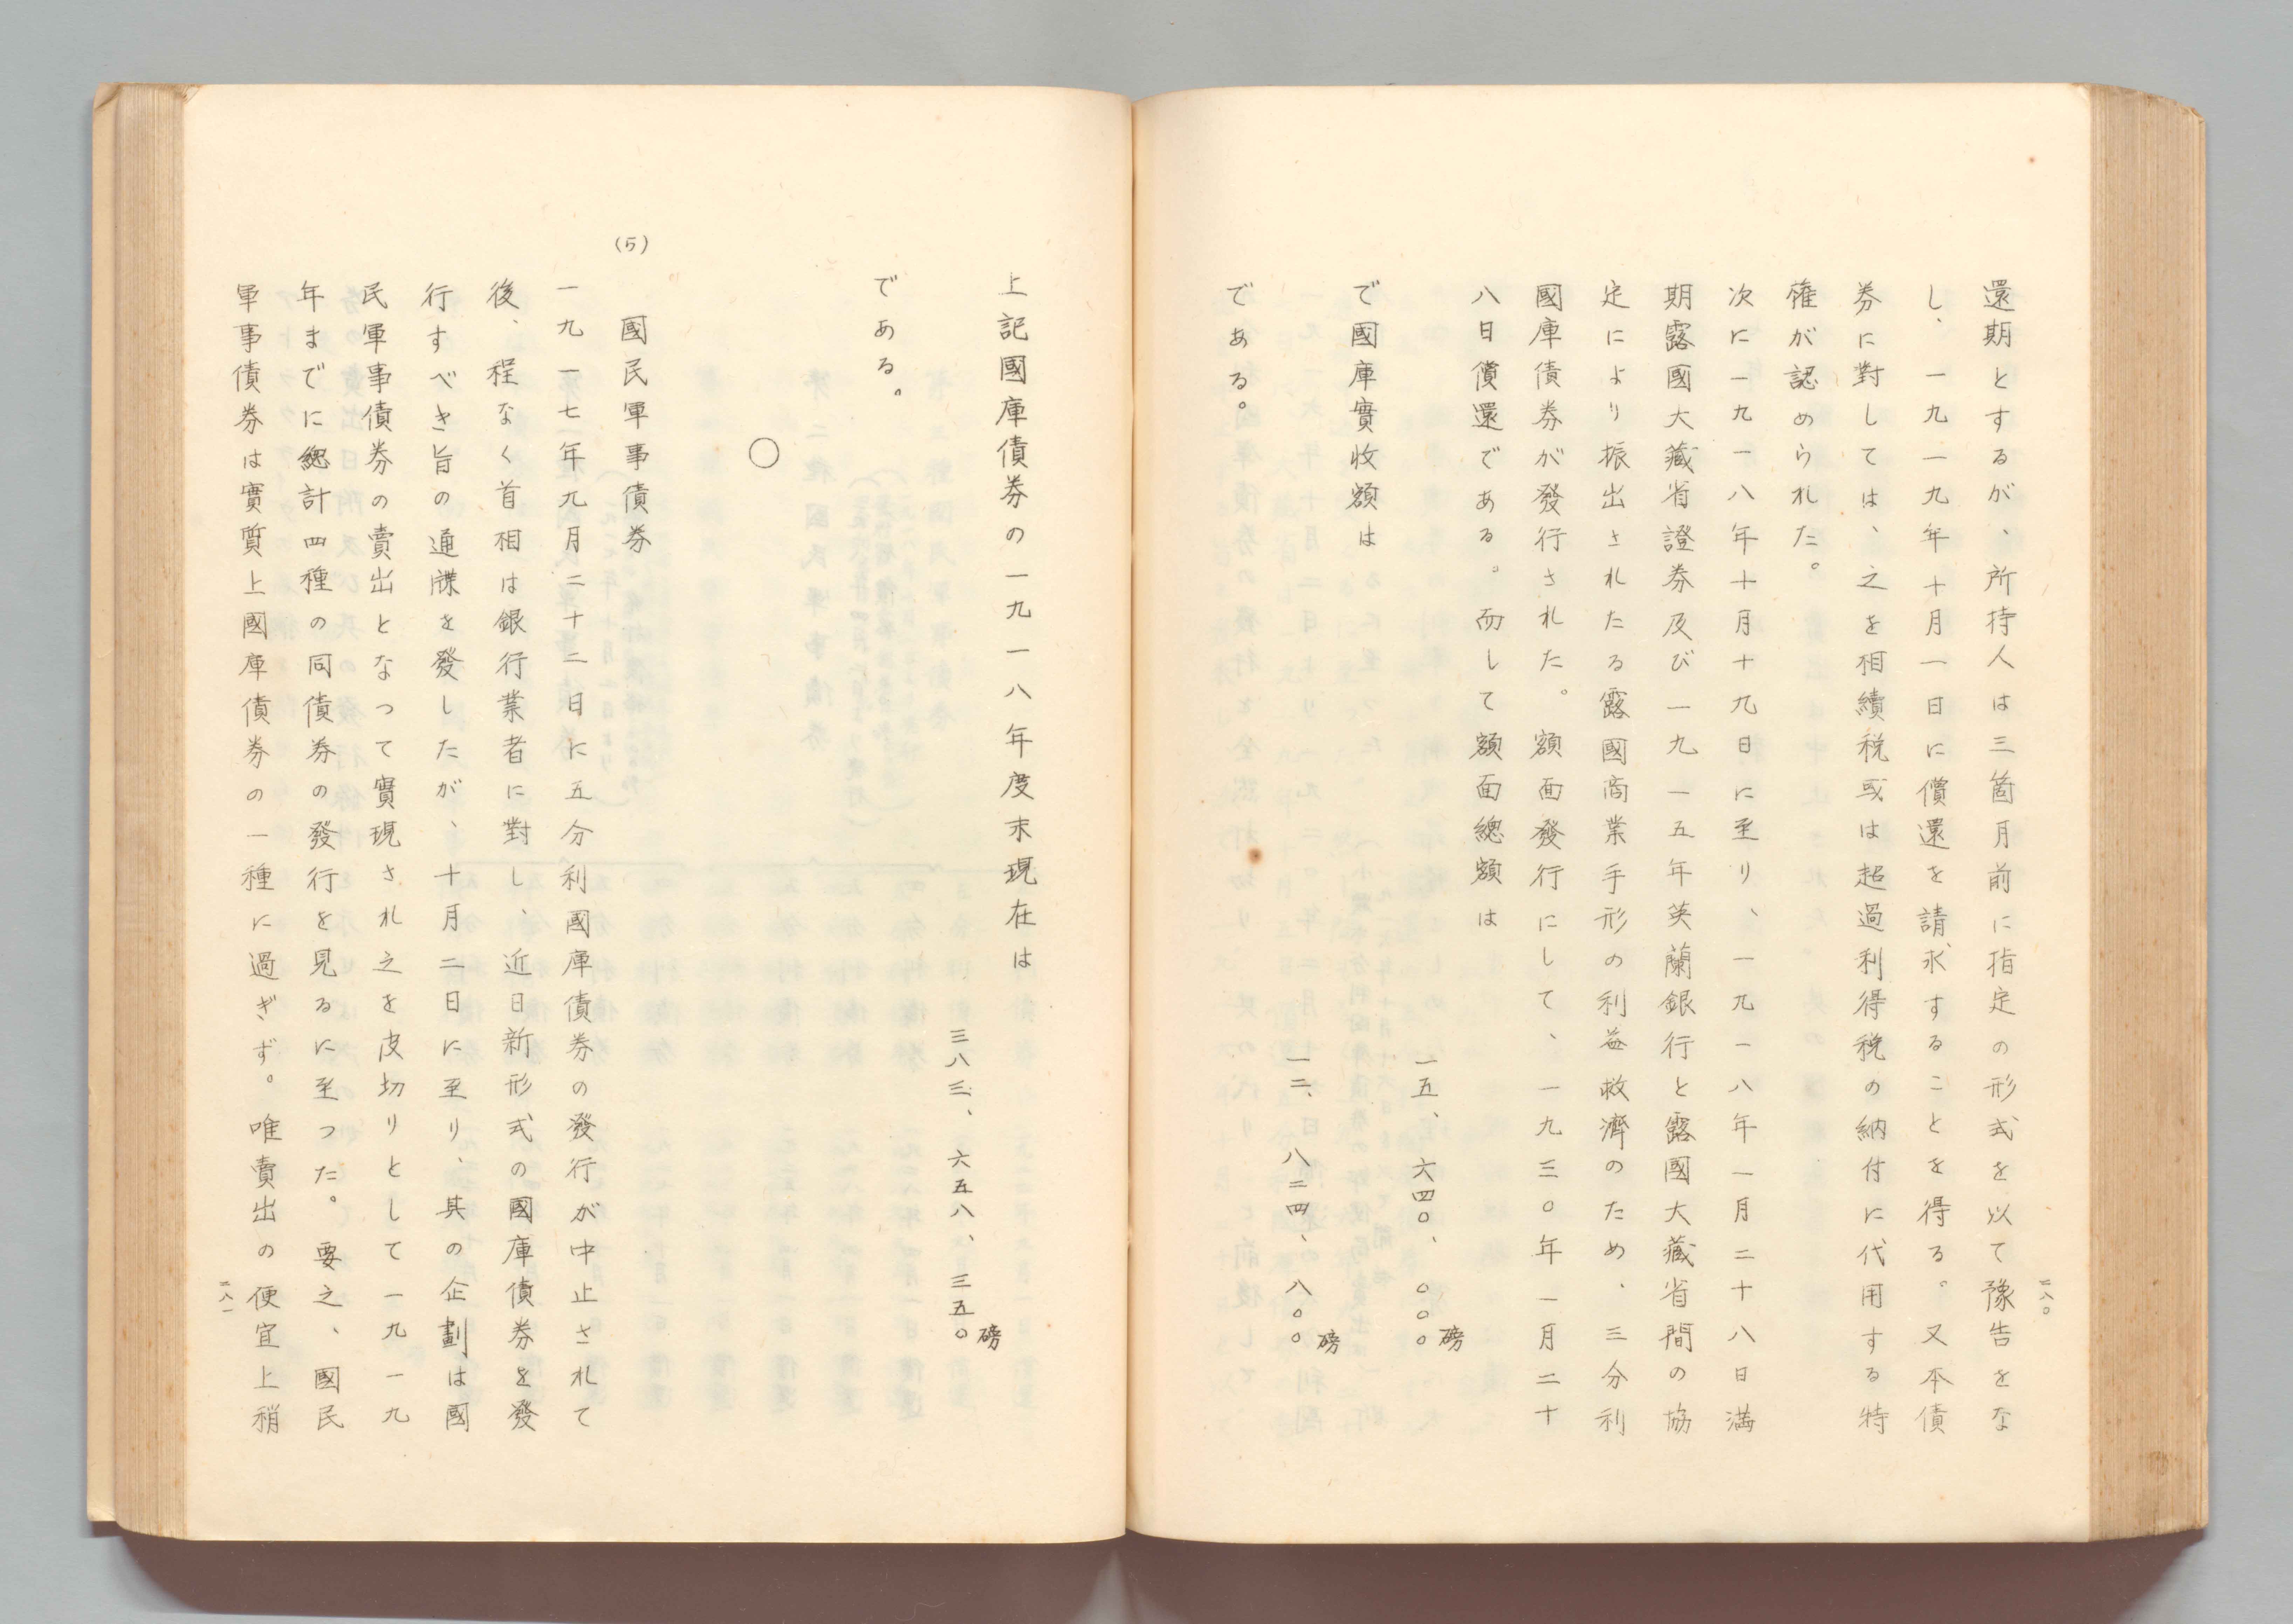 二八〇
還期とするが、所持人は三箇月前に指定の形式を以て豫告をな
し、一九一九年十月一日に償還を請求することを得る。又本債
券に對しては、之を相續税或は超過利得税の納付に代用する特
権が認められた。
次に一九一八年十月十九日に至り、一九一八年一月二十八日満
期露國大藏省證券及び一九一五年英蘭銀行と露國大藏省間の協
定により振出されたる露國商業手形の利益救濟のため、三分利
國庫債券が發行された。額面發行にして、一九三〇年一月二十
八日償還である。而して額面總額は
一五、六四〇、〇〇〇磅
で國庫實收額は
一二、八二四、八〇〇磅
である。
上記國庫債券の一九一八年度末現在は
三八三、六五八、三五〇磅
である。
〇
(5) 國民軍事債券
一九一七年九月二十二日に五分利國庫債券の發行が中止されて
後、程なく首相は銀行業者に對し、近日新形式の國庫債券を發
行すべき旨の通牒を發したが、十月二日に至り、其の企劃は國
民軍事債券の賣出となつて實現され之を皮切りとして一九一九
年までに總計四種の同債券の發行を見るに至つた。要之、國民
軍事債券は實質上國庫債券の一種に過ぎず。唯賣出の便宜上稍
二八一